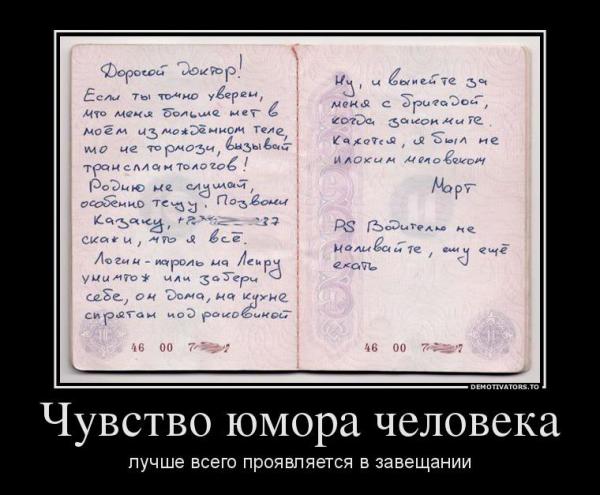 Дорогой доктор!
Если ты точно уверен,
что меня больше нет в
моём измождённом теле,
то не тормози, вызывай
трансплантологов!
Родню не слушай,
особенно тещу. Позвони
Казаку, 37
скажи, что я всё.
Логин-пароль на Лепру
уничтож или забери
себе, он дома, на кухне
спрятан под раковиной
46 00 7
Ну, и выпейте за
меня с бригадой,
когда закончите.
Кажется, я был не
плохим человеком
Март
PS Водителю не
наливайте, ему ещё
ехать
46 00 7
DEMOTIVATORS.TO
Чувство юмора человека
лучше всего проявляется в завещании